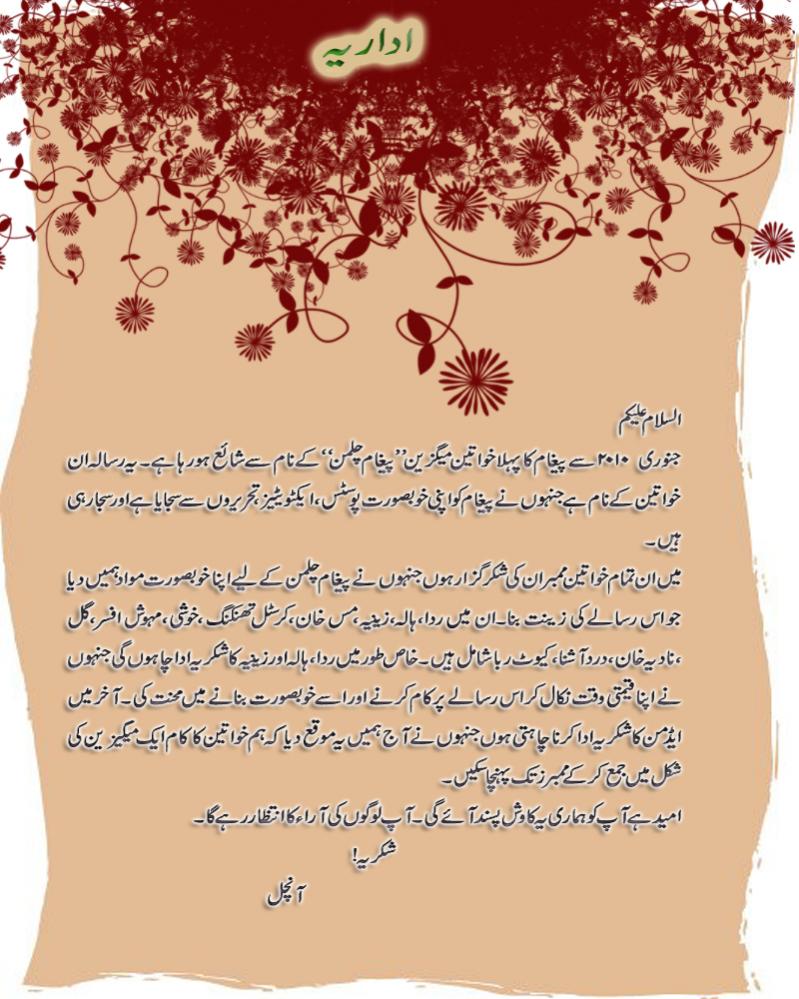 اداریہ
السلام علیکم
جنوری ۲۰۱۰ سے پیغام کا پہلا خواتین میگزین ’’پیغام چلمن‘‘ کے نام سے شائع ہو رہا ہے۔ یہ رسالہ ان
خواتین کے نام ہے جنہوں نے پیغام کو اپنی خوبصورت پوسٹس، ایکٹویٹیز، تحریروں سے سجایا ہے اور سجا رہی
ہیں۔
میں ان تمام خواتین ممبران کی شکر گزار ہوں جنہوں نے پیغام چلمن کے لیے اپنا خوبصورت مواد ہمیں دیا
جو اس رسالے کی زینت بنا۔ ان میں ردا، ہالہ، زینیہ، مس خان، کرسٹل تھنکنگ، خوشی، مہوش افسر، گل
، نادیہ خان، درد آشنا، کیوٹ ربا شامل ہیں۔ خاص طور میں ردا، ہالہ اور زینیہ کا شکریہ ادا چاہوں گی جنہوں
نے اپنا قیمتی وقت نکال کر اس رسالے پر کام کرنے اور اسے خوبصورت بنانے میں محنت کی۔ آخر میں
ایڈمن کا شکریہ ادا کرنا چاہتی ہوں جنہوں نے آج ہمیں یہ موقع دیا کہ ہم خواتین کا کام ایک میگیزین کی
شکل میں جمع کر کے ممبرز تک پہنچا سکیں۔
امید ہے آپ کو ہماری یہ کاوش پسند آئے گی۔ آپ لوگوں کی آراء کا انتظار رہے گا۔
شکریہ!
آنچل